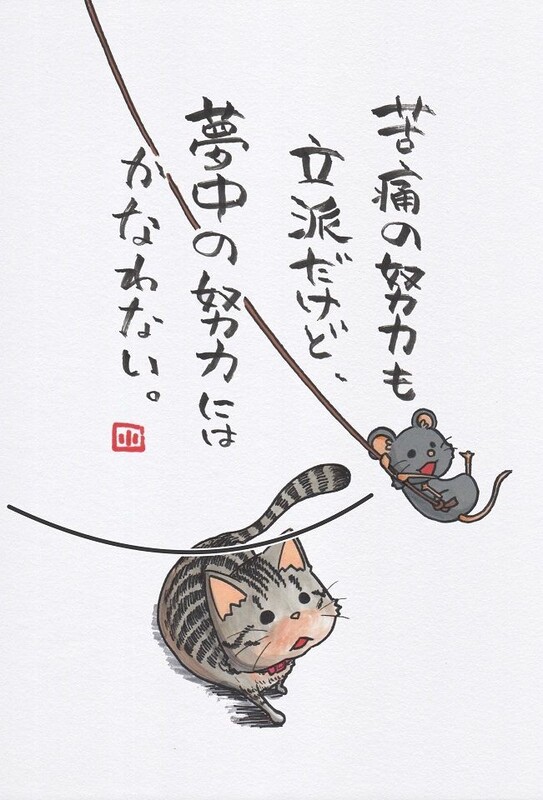 苦痛の努力も
立派だけど、
夢中の努力には
かなわない。
小